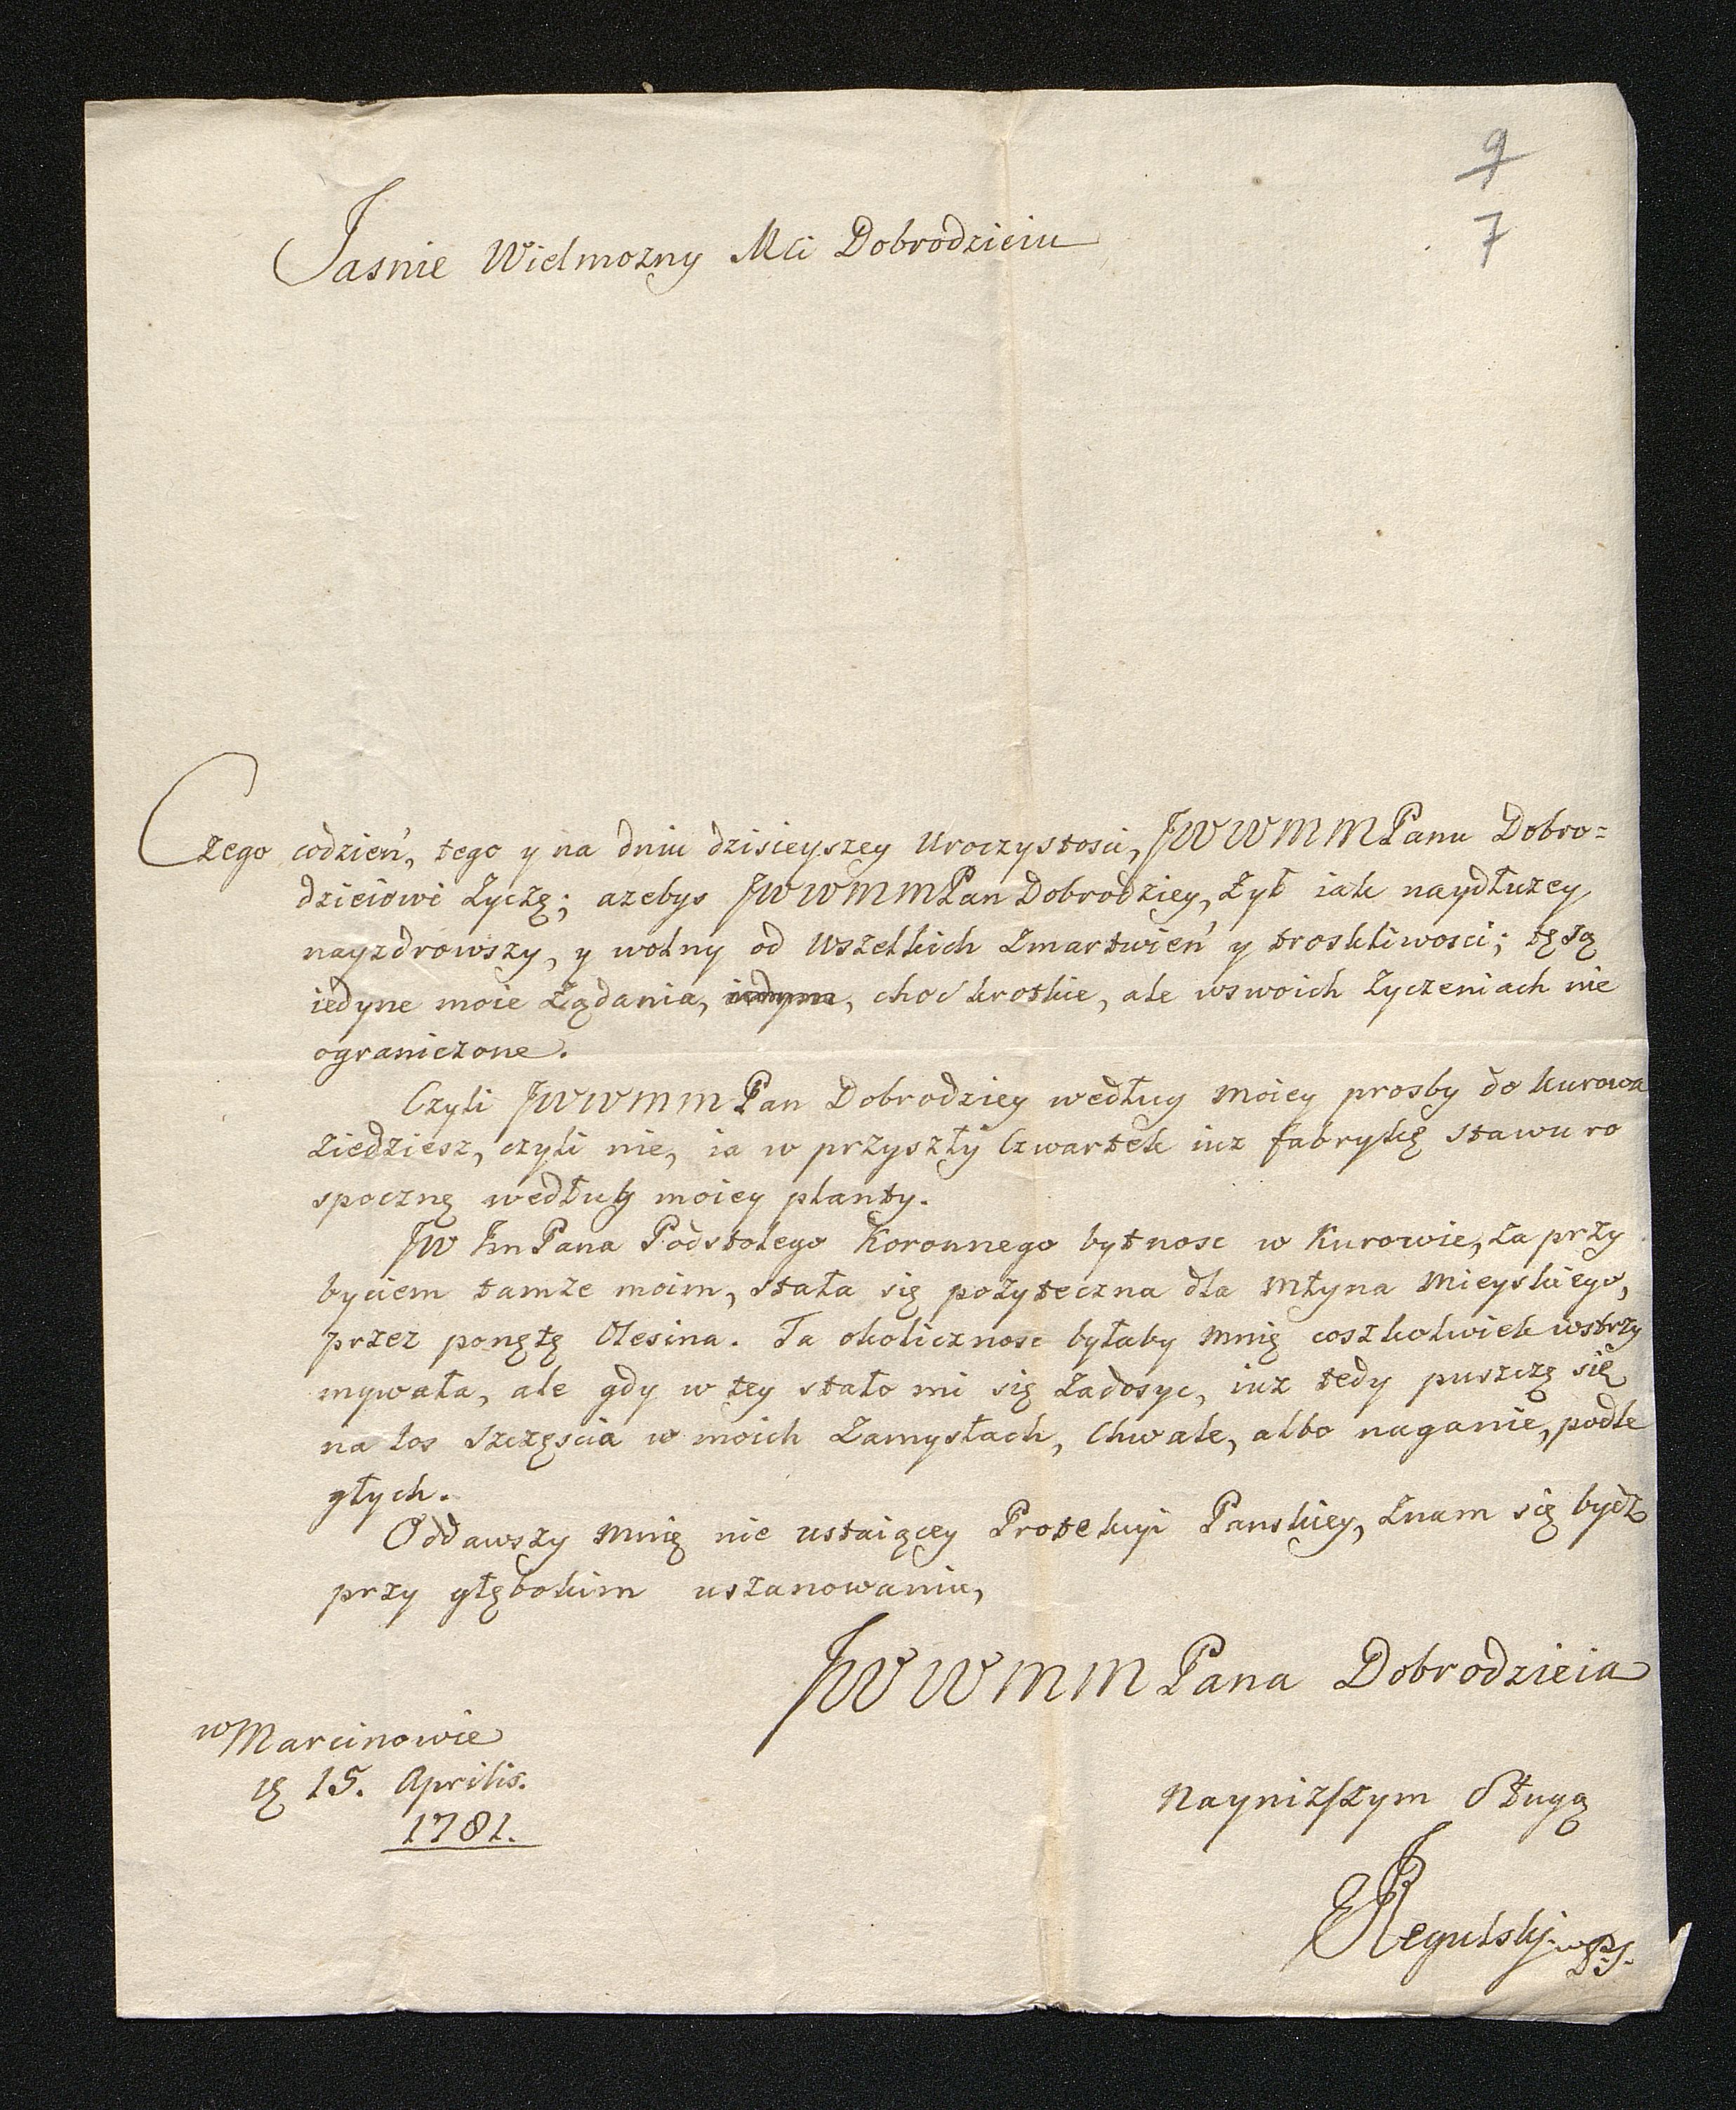 9
7
Jasnie Wielmozny Mci Dobrodzieiu
Czego codzień, tego y na dniu dzisieyszey Uroczystosci, JWWMMPanu Dobro=
dzieiowi Zyczę; azebys JWWMMPan Dobrodziey, Zył iak naydłuzey
nayzdrowszy, y wolny od Wszelkich Zmartwień y troskliwosci; tę są
iedyne moie Ządania, iedyne, choć krotkie, ale wswoich Zyczeniach nie
ograniczone.
Czyli JWWMMPan Dobrodziey według moiey prosby do Kurowa
Ziedziesz, czyli nie, ia w przyszły Czwartek iuz fabrykę stawu ro
spocznę według moiey planty.
JW JmPana Podstolego Koronnego bytnosc w Kurowie, Za przy
byciem tamze moim, stała się pozyteczna dla Młyna Mieyskiego,
przez ponętę Olesina. Ta okolicznosc byłaby Mnię coszkolwiek wstrzy
mywała, ale gdy w tey stało mi się Zadosyc, iuz tedy puszczę się
na los Szczęscia w moich Zamysłach, Chwale, albo naganie, podle
głych.
Oddawszy Mnię nie ustaiącey Protekcyi Panskiey, Znam się bydz
przy głębokim uszanowaniu,
JWWMMPana Dobrodzieia
w Marcinowie
15. Aprilis.
1781.
Nayniższym Sługą
Regulski